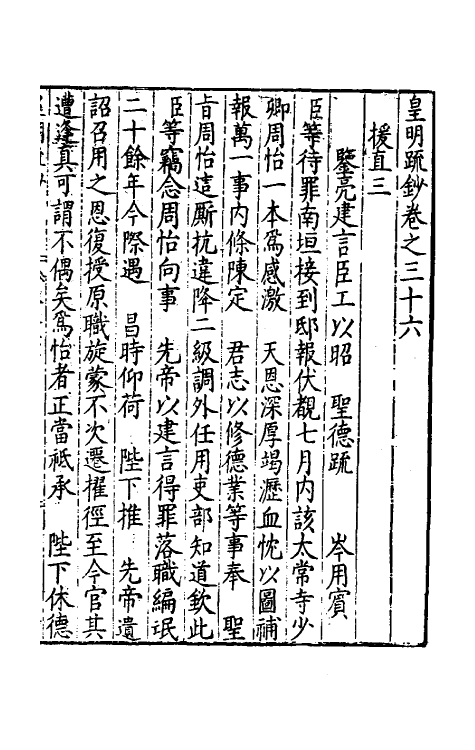 皇明疏鈔卷之三十六
援直三
鑒亮建言臣工以昭　聖德疏　岑用賓
臣等待罪南垣接到邸報伏覩七月内該太常寺少
卿周怡一本爲感激　天恩深厚竭瀝血忱以圖補
報萬一事内條陳定　君志以修德業等事奉　聖
旨周怡這厮抗違降二級調外任用吏部知道欽此
臣等竊念周怡向事　先帝以建言得罪落職編氓
二十餘年今際遇　昌時仰荷　陛下推　先帝遺
詔召用之恩復授原職旋蒙不次遷擢徑至今官其
遭逢真可謂不偶矣爲怡者正當祗承　陛下休德